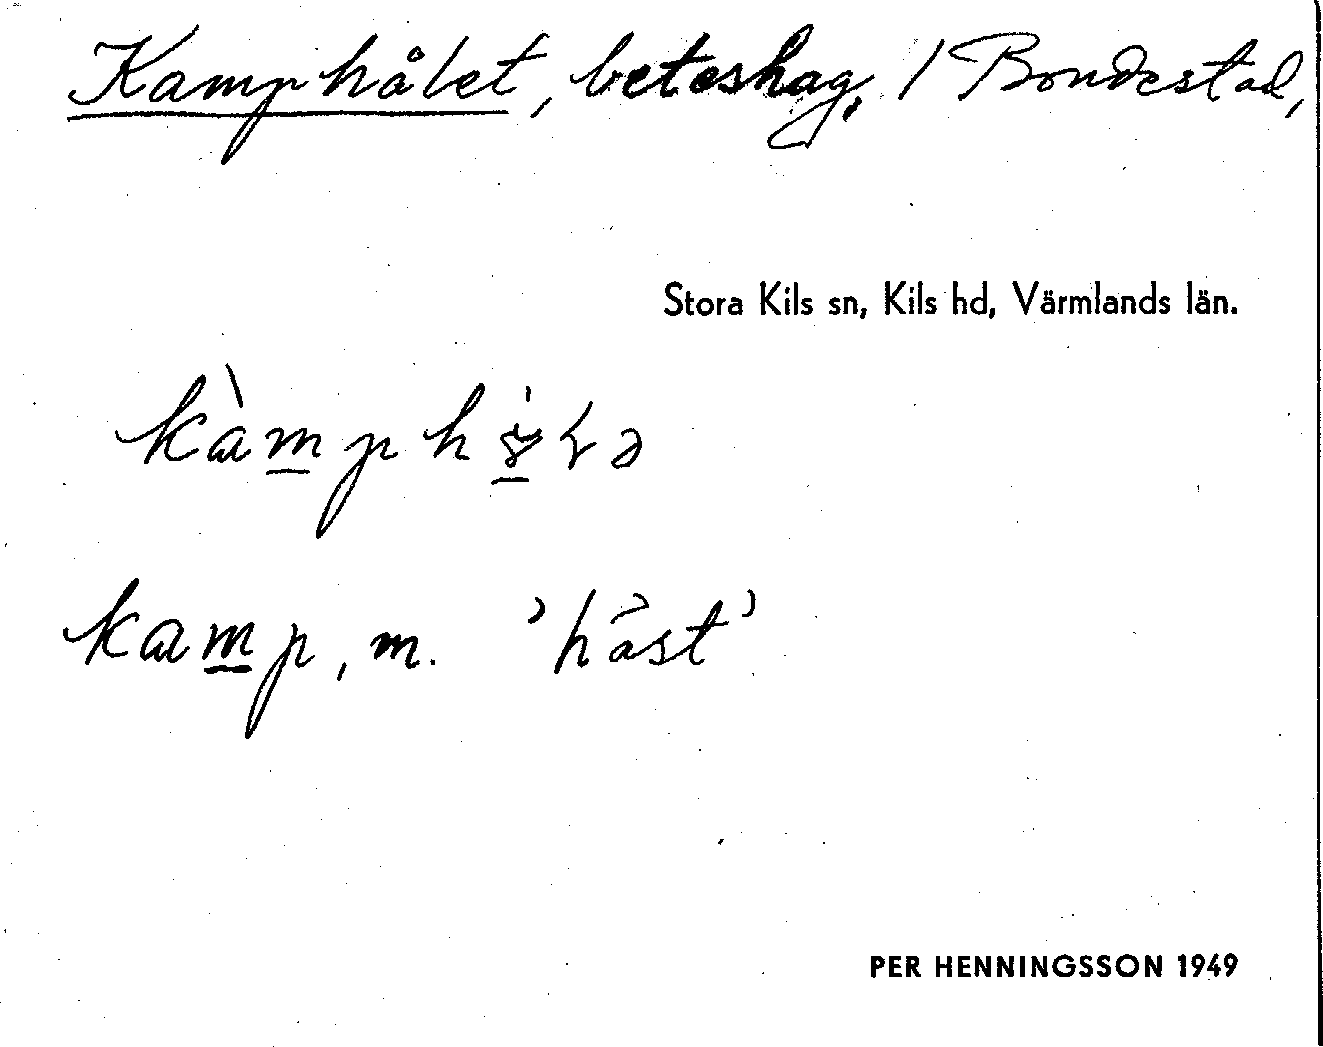 Kamphålet, beteshag, / Bondestad,
Stora Kils sn, Kils hd, Värmlands län.
kamp, m. 'häst'
PER HENNINGSSON 1949